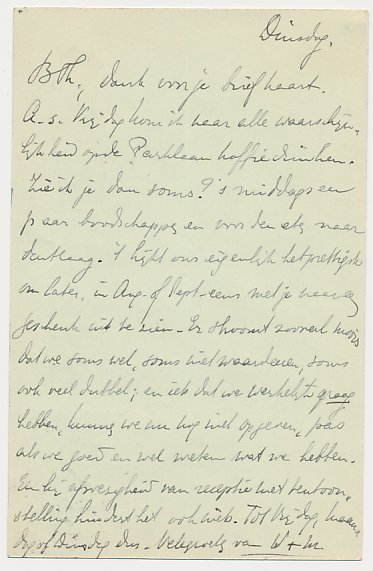 Dinsdag.
B Th., dank voor je briefkaart.
A.s. Vrijdag kom ik naar alle waarschijn-
lijkheid op de Parklaan koffie drinken.
Zie ik je dan soms? 's middags een
paar boodschappen en voor den eten naar
den Haag. 't Lijkt ons eigenlijk het prettigste
om later, in Aug. of Sept. eens met je naar een
geschenk uit te zien. Er stroomt zooveel moois
dat we soms wel, soms niet waardeeren, soms
ook veel dubbel; en iets dat we werkelijk graag
hebben, kunnen we nu nog niet opgeven, pas
als we goed en wel weten wat we hebben.
En bij afwezigheid van receptie met tentoon-
stelling hindert het ook niets. Tot Vrijdag, Maan-
dag of Dinsdag dus. Vele groeten van W + M.